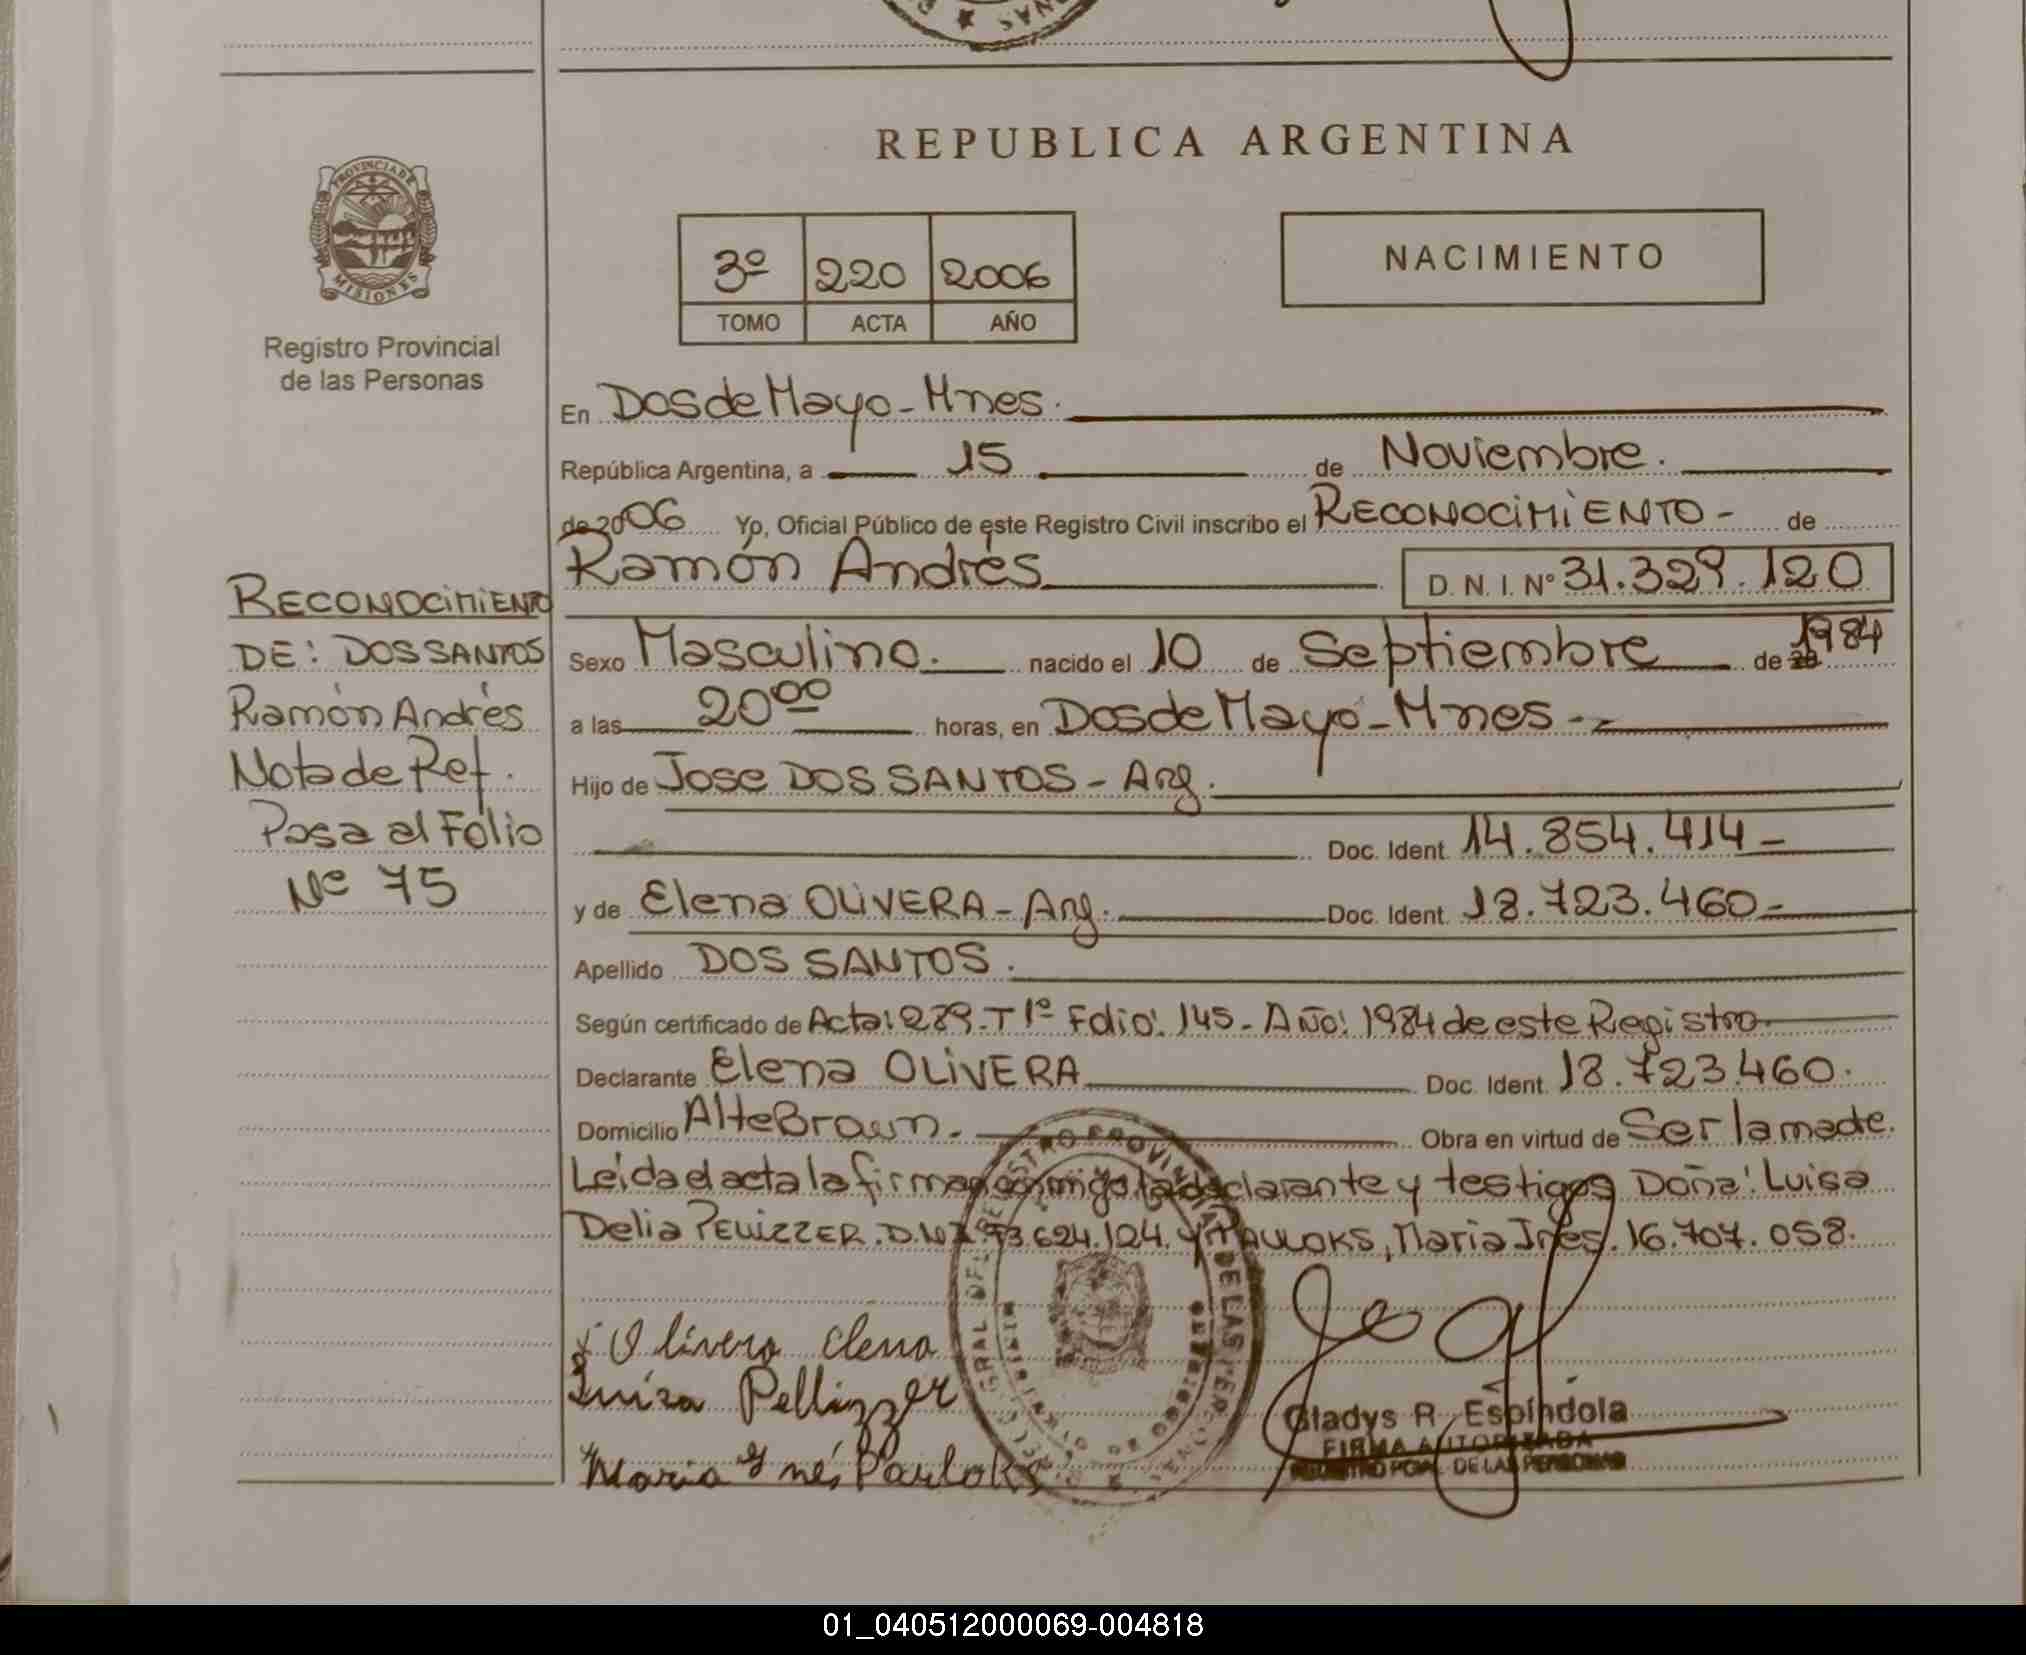 REPUBLICA ARGENTINA
PROVINCIA DE
MISIONES
Registro Provincial
de las Personas
3º 220 2006
TOMO ACTA AÑO
NACIMIENTO
En Dos de Mayo - Mnes.
República Argentina, a 15 de Noviembre.
de 2006 Yo, Oficial Público de este Registro Civil inscribo el RECONOCIMIENTO - de
Ramón Andrés D. N. I. Nº 31.329.120
Sexo Masculino. nacido el 10 de Septiembre de 1984
a las 20ºº horas, en Dos de Mayo - Mnes -
Hijo de Jose DOS SANTOS - Arg.
Doc. Ident. 14.854.414 -
y de Elena OLIVERA - Arg. Doc. Ident. 18.723.460 -
Apellido DOS SANTOS.
Según certificado de Acta: 289 - T 1º Folio: 145 - Año: 1984 de este Registro.
Declarante Elena OLIVERA Doc. Ident. 18.723.460.
Domicilio Alte Brown. Obra en virtud de Ser la madre.
Leída el acta la firman conmigo la declarante y testigos Doña: Luisa
Delia PELLIZZER. D.N.I. 93.624.124. y PAULOKS, Maria Inés. 16.707.058.
RECONOCIMIENTO
DE: DOS SANTOS
Ramón Andrés
Nota de Ref.
Pasa al Folio
Nº 75
x Olivera Elena
Luisa Pellizzer
Maria Ynés Pauloks
Gladys R. Espíndola
FIRMA AUTORIZADA
REGISTRO PCIAL. DE LAS PERSONAS
01_040512000069-004818